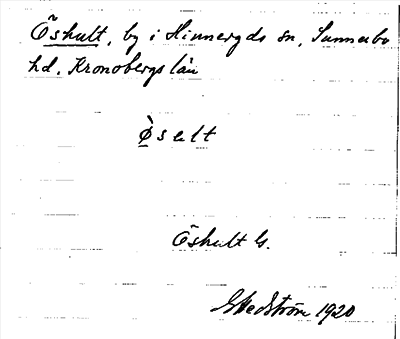 Öshult, by i Hinneryds sn, Sunnerbo
hd. Kronobergs län
Ø̀selt
Öshult G.
G Hedström 1920